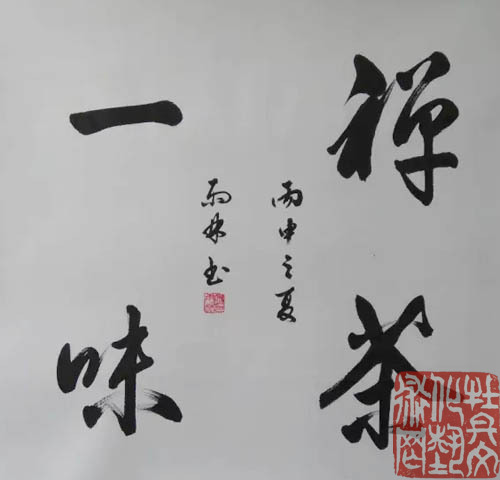 禅茶
一味
丙申之夏
雨林书